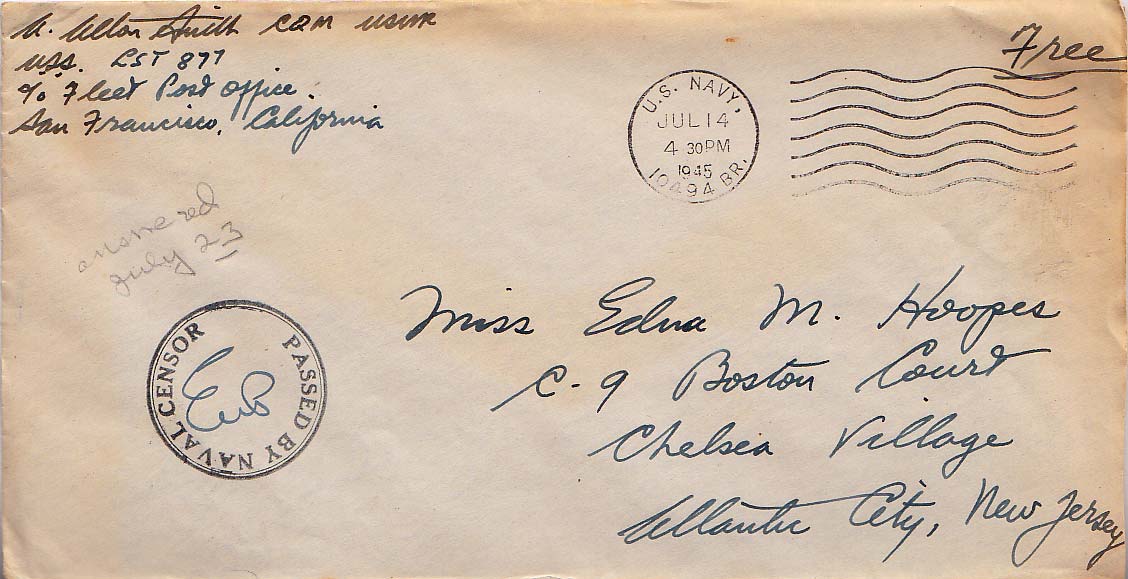 A. Alton Smith CQM USNR
USS. LST 877
c/o Fleet Post Office.
San Francisco, California
Free
U.S. NAVY,
JUL 14
4 30 PM
1945
10494 BR.
answered
July 23
PASSED BY NAVAL CENSOR
Miss Edna M. Hoopes
C-9 Boston Court
Chelsea Village
Atlantic City, New Jersey